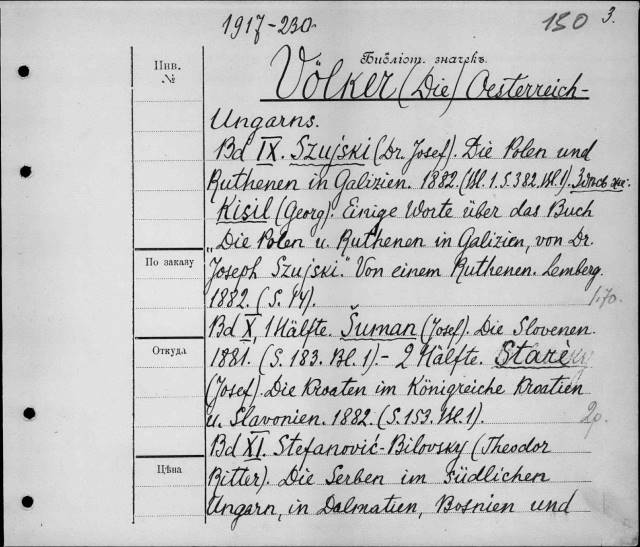 1917-230.
150
3.
Инв.
№
Библіот. значекъ.
Völker (Die) Oesterreich-
Ungarns.
Bd IX. Szujski (Dr. Josef). Die Polen und
Ruthenen in Galizien. 1882. (Bl. 1. S. 282. Bl. 1). Здѣсь же:
Kisil (Georg). Einige Worte über das Buch
„Die Polen u. Ruthenen in Galizien, von Dr.
По заказу
Joseph Szujski." Von einem Ruthenen. Lemberg.
1882. (S. 14).
1.70.
Bd X, 1 Hälfte. Šuman (Josef). Die Slovenen.
Откуда
1881. (S. 183. Bl. 1).- 2 Hälfte. Starè
(Josef). Die Kroaten im Königreiche Kroatien
u. Slavonien. 1882. (S. 153. Bl. 1).
2р.
Bd XI. Stefanović-Bilovsky (Theodor
Цѣна
Ritter). Die Serben im südlichen
Ungarn, in Dalmatien, Bosnien und